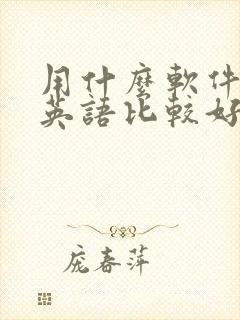 用什麼軟件
英語比較好
庞春萍